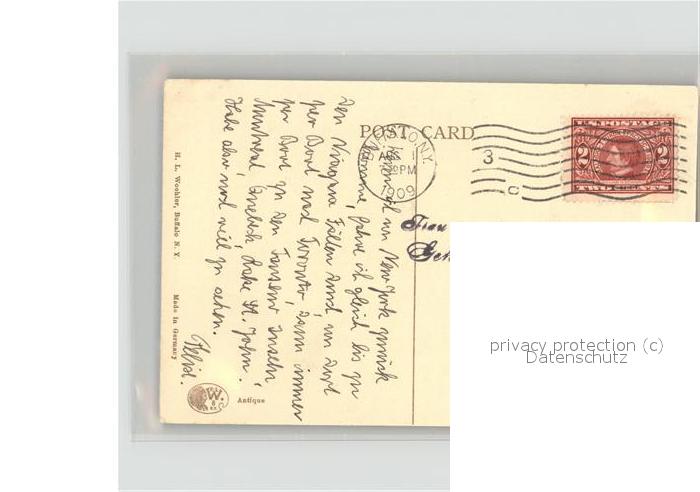 POST CARD
N.Y.
1909
3
C
U.S. POSTAGE
2 2
Wenn ich von New York zurück
komme, fahre ich gleich bis zu
den Niagara Fällen und von dort
per Boot nach Toronto, dann immer
per Boot zu den Tausend Inseln,
Montreal, Quebeck, Lake St. John!
Habe also noch viel zu sehen.
Frau
H. L. Woehler, Buffalo N. Y.
Made in Germany
W
Antique
privacy protection (c)
Datenschutz